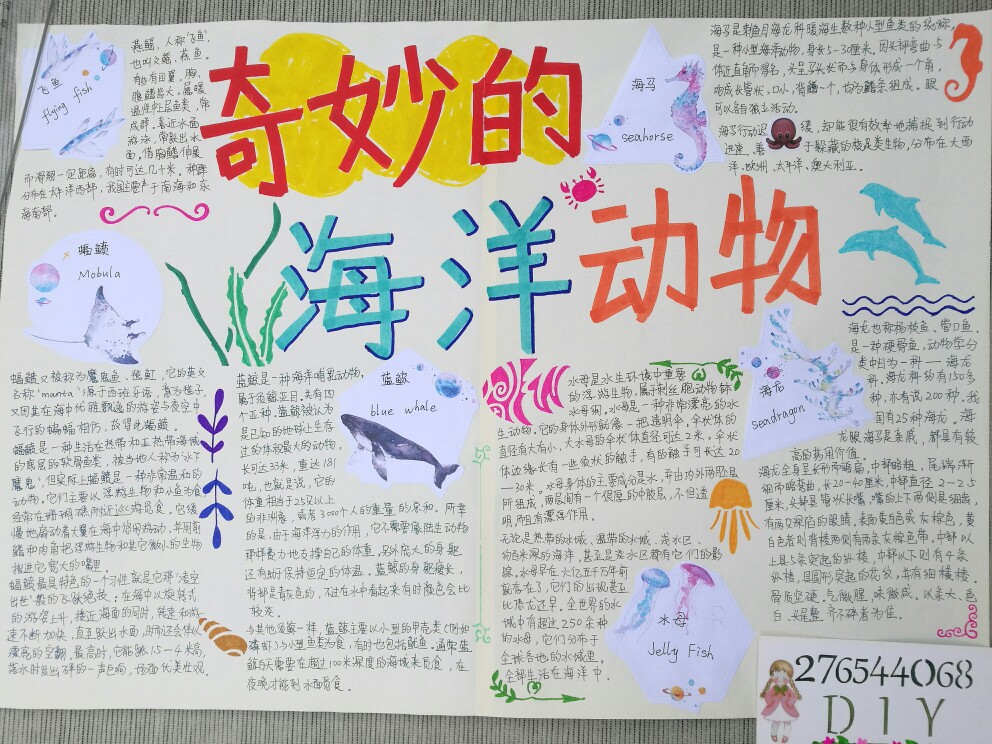 奇妙的
海洋动物
飞鱼
flying fish
燕鳐，人称"飞鱼"，
也叫文鳐、燕鱼。
温性中上层鱼类，常
成群，喜近水面
游泳，常跃出水
而滑翔一定距离，有时可达几十米。种群
分布在太平洋西部，我国主要产于南海和东
海南部。
海马
seahorse
海马是刺鱼目海龙科暖海生数种小型鱼类的统称，
是一种小型海洋动物，身长5-30厘米。因头部弯曲与
体近直角而得名，头呈马头状而与身体形成一个角，
吻成长管状，口小，背鳍一个，也为鳍条组成。眼
可以各自独立活动。
海马行动迟缓，却能很有效率地捕捉到行动
迅速、善于躲藏的桡足类生物，分布在大西
洋、欧洲、太平洋、澳大利亚。
蝠鲼
Mobula
蝠鲼又被称为魔鬼鱼、毯魟，它的英文
名称"manta"源于西班牙语，意为毯子，
又因其在海中优雅飘逸的游姿与夜空中
飞行的蝙蝠相仿，故得此蝠鲼。
蝠鲼是一种生活在热带和亚热带海域
的底层的软骨鱼类，被当地人称为"水下
魔鬼"，但实际上蝠鲼是一种非常温和的
动物，它们主要以浮游生物和小鱼为食
经常在珊瑚礁附近巡游觅食。它缓
慢地扇动着大翼在海中悠闲游动，并用前
鳍和肉角把浮游生物和其它微小的生物
拨进它宽大的嘴里
蝠鲼最具特色的一个习性就是它那"凌空
出世"般的飞跃绝技：在海中以旋转式
的游姿上升，接近海面的同时，转速和游
速不断加快，直至跃出水面，时而还会伴以
漂亮的空翻，最高时，它能跳1.5—4米高，
落水时发出砰的一声巨响，场面优美壮观。
蓝鲸
blue whale
蓝鲸是一种海洋哺乳动物，
属于须鲸亚目。共有四
个亚种。蓝鲸被认为
是已知的地球上生存
过的体积最大的动物，
长可达33米，重达181
吨，也就是说，它的
体重相当于25只以上
的非洲象，或者3000个人的重量的总和。所幸
的是，由于海洋浮力的作用，它不需要像陆生动物
那样费力地支撑自己的体重，另外庞大的身躯
还有助于保持恒定的体温。蓝鲸的身躯瘦长，
背部是青灰色的，不过在水中看起来有时颜色会比
较淡。
与其他须鲸一样，蓝鲸主要以小型的甲壳类（例如
磷虾）与小型鱼类为食，有时也包括鱿鱼。通常蓝
鲸白天需要在超过100米深度的海域来觅食，在
夜晚才能到水面觅食。
水母是水生环境中重要
的浮游生物，属于刺丝胞动物钵
水母纲，水母是一种非常漂亮的水
生动物。它的身体外形就像一把透明伞，伞状体的
直径有大有小，大水母的伞状体直径可达2米。伞状
体边缘长有一些须状的触手，有的触手可长达20
—30米。水母身体的主要成分是水，并由内外两胚层
所组成，两层间有一个很厚的中胶层，不但透
明，而且有漂浮作用。
无论是热带的水域、温带的水域、浅水区、
约百米深的海洋，甚至是淡水区都有它们的影
踪。水母早在六亿五千万年前
就存在了，它们的出现甚至
比恐龙还早。全世界的水
域中有超过250余种
的水母，它们分布于
全球各地的水域里。
全部生活在海洋中。
水母
Jelly Fish
海龙
seadragon
海龙也称杨枝鱼、管口鱼。
是一种硬骨鱼，动物学分
类中归为一科——海龙
科，海龙科约有150多
种，亦有说200种，我
国有25种海龙。海
龙跟海马是亲戚，都具有较
高的药用价值。
海龙全身呈长形而略扁，中部略粗，尾端渐
细而略弯曲，长20-40厘米，中部直径2-2.5
厘米，头部具管状长嘴，嘴的上下两侧具细齿，
有两只深陷的眼睛，表面黄白色或灰棕色，黄
白色者则背棱两侧有两条灰棕色带。中部以
上具5条突起的纵棱，中部以下则有4条
纵棱，具圆形突起的花纹，并有细横棱。
骨质坚硬。气微腥，味微咸。以条大、色
白、头尾整齐不碎者为佳。
276544068
DIY